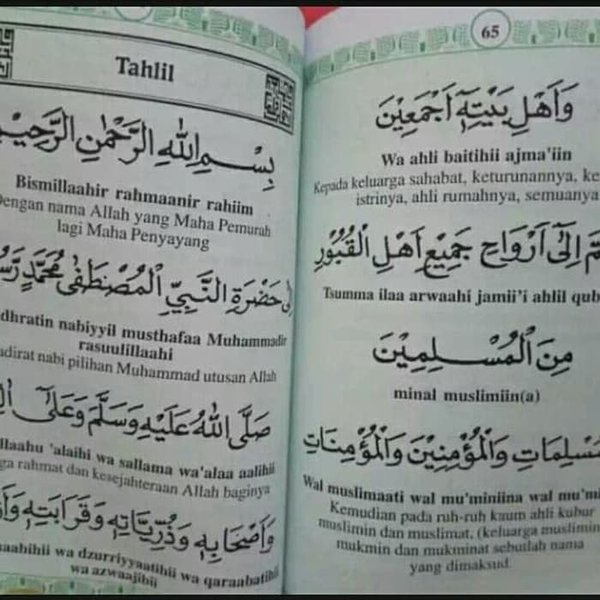 Tahlil
بِسْمِ اللهِ الرَّحْمٰنِ الرَّحِيْمِ
Bismillaahir rahmaanir rahiim
Dengan nama Allah yang Maha Pemurah
lagi Maha Penyayang
حَضْرَةِ النَّبِيِّ الْمُصْطَفٰى مُحَمَّدٍ
nabiyyil musthafaa Muhammadir
rasuulillaahi
nabi pilihan Muhammad utusan Allah
صَلَّى اللهُ عَلَيْهِ وَسَلَّمَ وَعَلٰى
'alaihi wa sallama wa'alaa aalihii
rahmat dan kesejahteraan Allah baginya
وَاَصْحَابِهٖ وَذُرِّيَّاتِهٖ وَقَرَابَتِهٖ
wa dzurriyyaatihii wa qaraabatihii
wa azwaajihii
65
وَاَهْلِ بَيْتِهٖٓ اَجْمَعِيْنَ
Wa ahli baitihii ajma'iin
Kepada keluarga sahabat, keturunannya,
istrinya, ahli rumahnya, semuanya
اِلٰٓى اَرْوَاحِ جَمِيْعِ اَهْلِ الْقُبُوْرِ
Tsumma ilaa arwaahi jamii'i ahlil
مِنَ الْمُسْلِمِيْنَ
minal muslimiin(a)
وَالْمُؤْمِنِيْنَ وَالْمُؤْمِنَاتِ
Wal muslimaati wal mu'miniina wal
Kemudian pada ruh-ruh kaum ahli kubur
muslimin dan muslimat, (keluarga muslimin
mukmin dan mukminat sebutlah nama
yang dimaksud